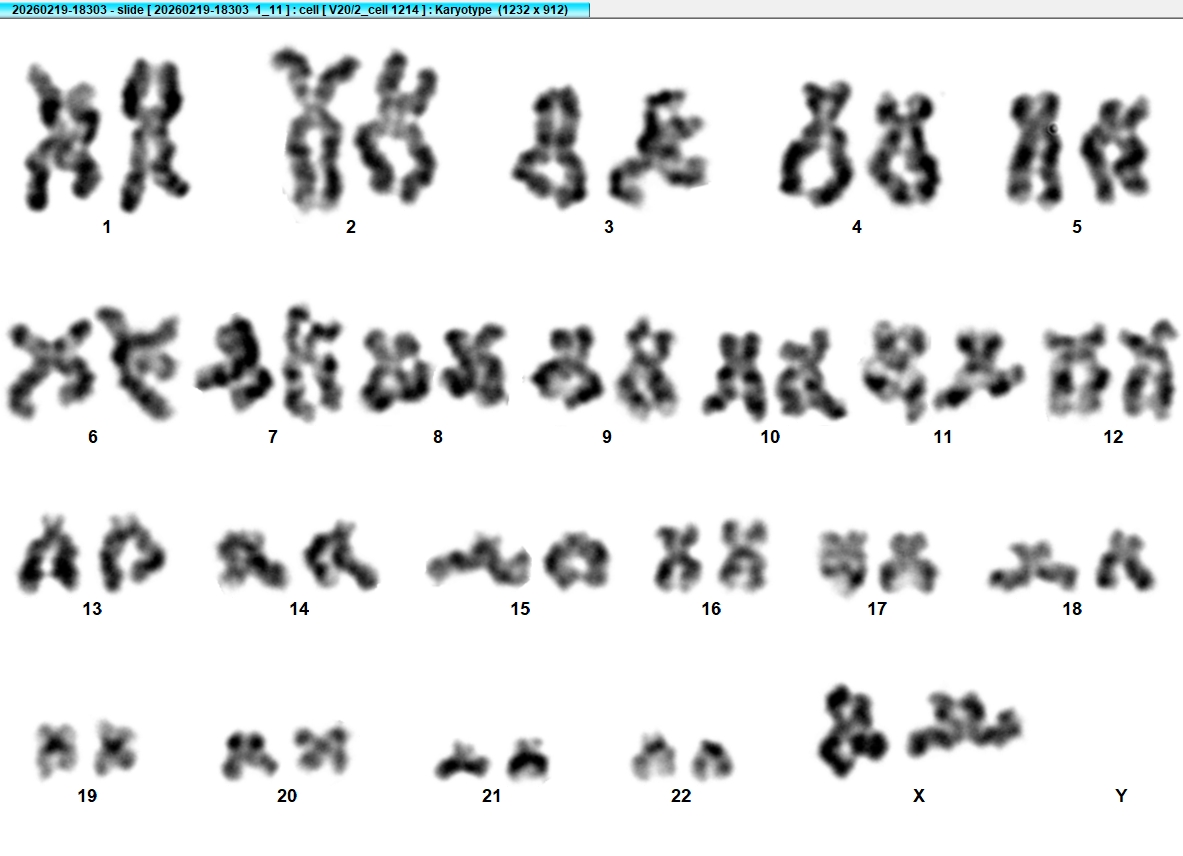 20260219-18303 - slide [ 20260219-18303 1_11 ] : cell [ V20/2_cell 1214 ] : Karyotype (1232 x 912)
1 2 3 4 5
6 7 8 9 10 11 12
13 14 15 16 17 18
19 20 21 22 X Y